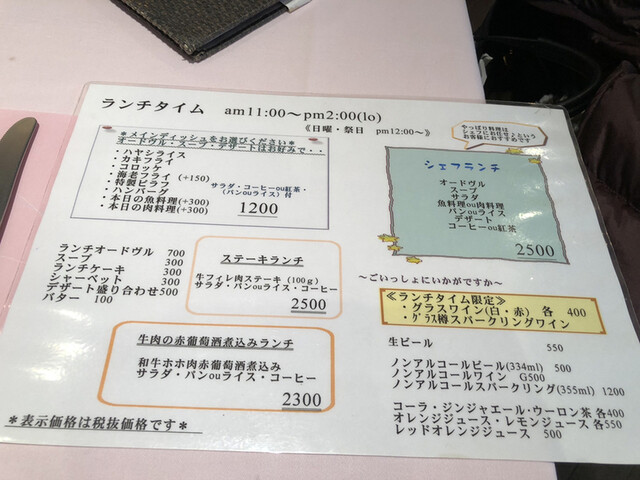 ランチタイム am11:00～pm2:00(lo)
≪日曜・祭日 pm12:00～≫
＊メインディッシュをお選びください＊
オードヴル・スープ・デザートはお好みで・・
・ハヤシライス
・カキフライ
・コロッケ
・海老フライ (+150)
・特製ピラフ
・ハンバーグ
・本日の魚料理(+300)
・本日の肉料理(+300)
サラダ・コーヒーou紅茶・
(パンouライス)付
1200
やっぱり料理は
シェフにお任せ♪という
お客様におすすめです
シェフランチ
オードヴル
スープ
サラダ
魚料理ou肉料理
パンouライス
デザート
コーヒーou紅茶
2500
ランチオードヴル 700
スープ 300
ランチケーキ 300
シャーベット 300
デザート盛り合わせ500
バター 100
ステーキランチ
牛フィレ肉ステーキ (100g)
サラダ・パンouライス・コーヒー
2500
牛肉の赤葡萄酒煮込みランチ
和牛ホホ肉赤葡萄酒煮込み
サラダ・パンouライス・コーヒー
2300
～ごいっしょにいかがですか～
≪ランチタイム限定≫
・グラスワイン(白・赤) 各 400
・グラス樽スパークリングワイン
生ビール 550
ノンアルコールビール(334ml) 500
ノンアルコールワイン G500
ノンアルコールスパークリング(355ml) 1200
コーラ・ジンジャエール・ウーロン茶 各400
オレンジジュース・レモンジュース 各550
レッドオレンジジュース 500
＊表示価格は税抜価格です＊